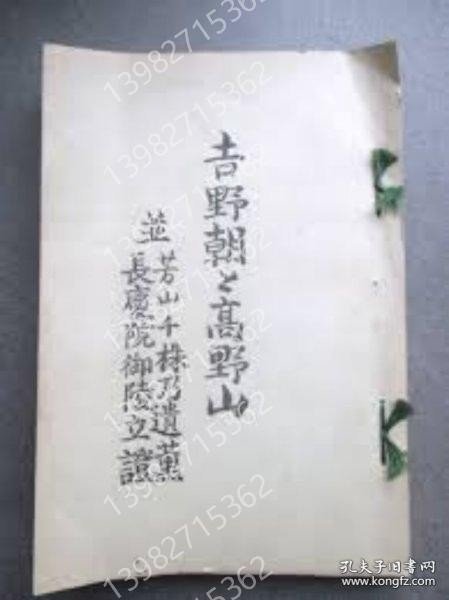 吉野朝と高野山
並
芳山千株乃遺薫
長慶院御陵立證
13982715362
13982715362
13982715362
孔夫子旧书网
www.kongfz.com